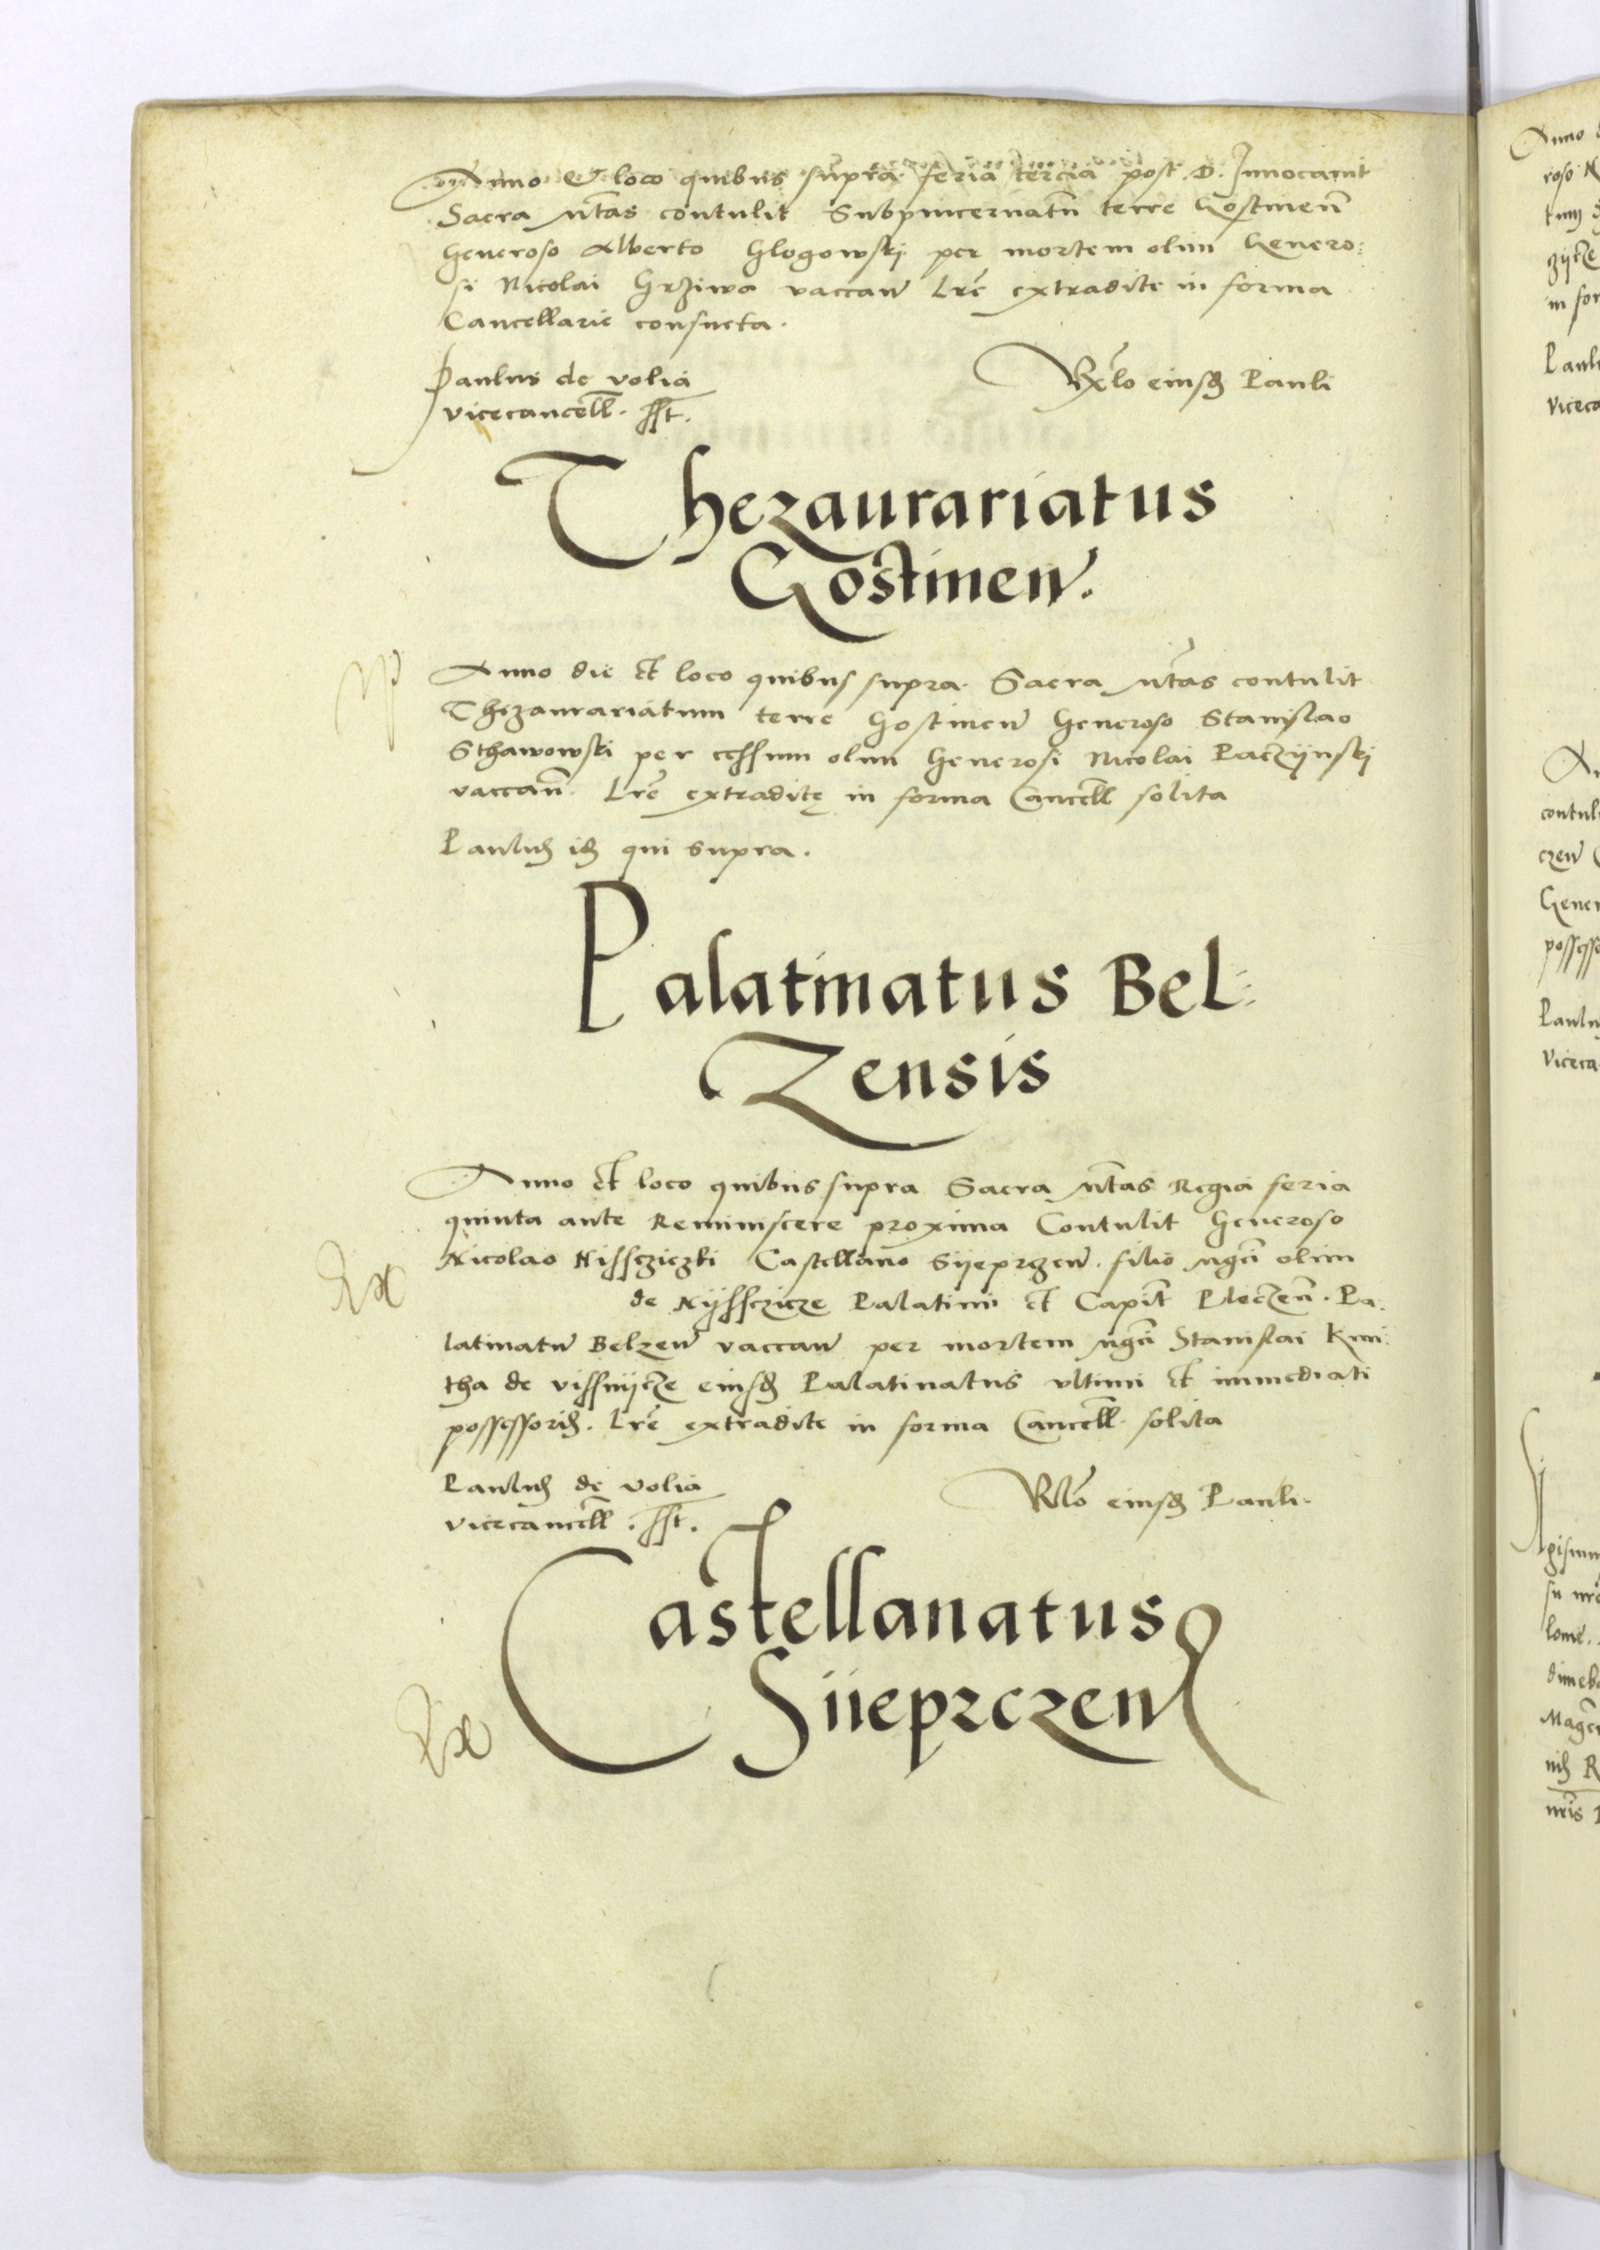 Anno & loco quibus supra feria tercia post D. Innocauit
Sacra Mtas contulit Subpincernatu terre Gostinen
Generoso Alberto Glogowskj per mortem olim Genero:
si Nicolai Grziwa vaccan Lre extradite in forma
Cancellarie consueta.
Paulus de volia
vicecancell. sst.
Rlo eiusd Pauli
Thezaurariatus
Gostinen.
Anno die et loco quibus supra. Sacra Mtas contulit
Thezaurariatum terre Gostinen Generoso Stanislao
Sthawowski per cessum olim Generosi Nicolai Paczijnskj
vaccan. Lre extradite in forma Cancell solita
Paulus id qui supra.
Palatinatus Bel:
Zensis
Anno et loco quibus supra Sacra Mtas Regia feria
quinta ante Reminiscere proxima Contulit Generoso
Nicolao Nisscziczki Castellano Sijeprzen. filio mgci olim
de Nijssczicze Palatini et Capit Ploczen. Pa:
latinatu Belzen vaccan per mortem mgci Stanislai Kmi:
tha de vissnijcze eiusd Palatinatus vltimi et immediati
possessoris. Lre extradite in forma Cancell. solita
Paulus de volia
vicecancell. sst.
Rlo eiusd Pauli.
Castellanatus
Siieprczen